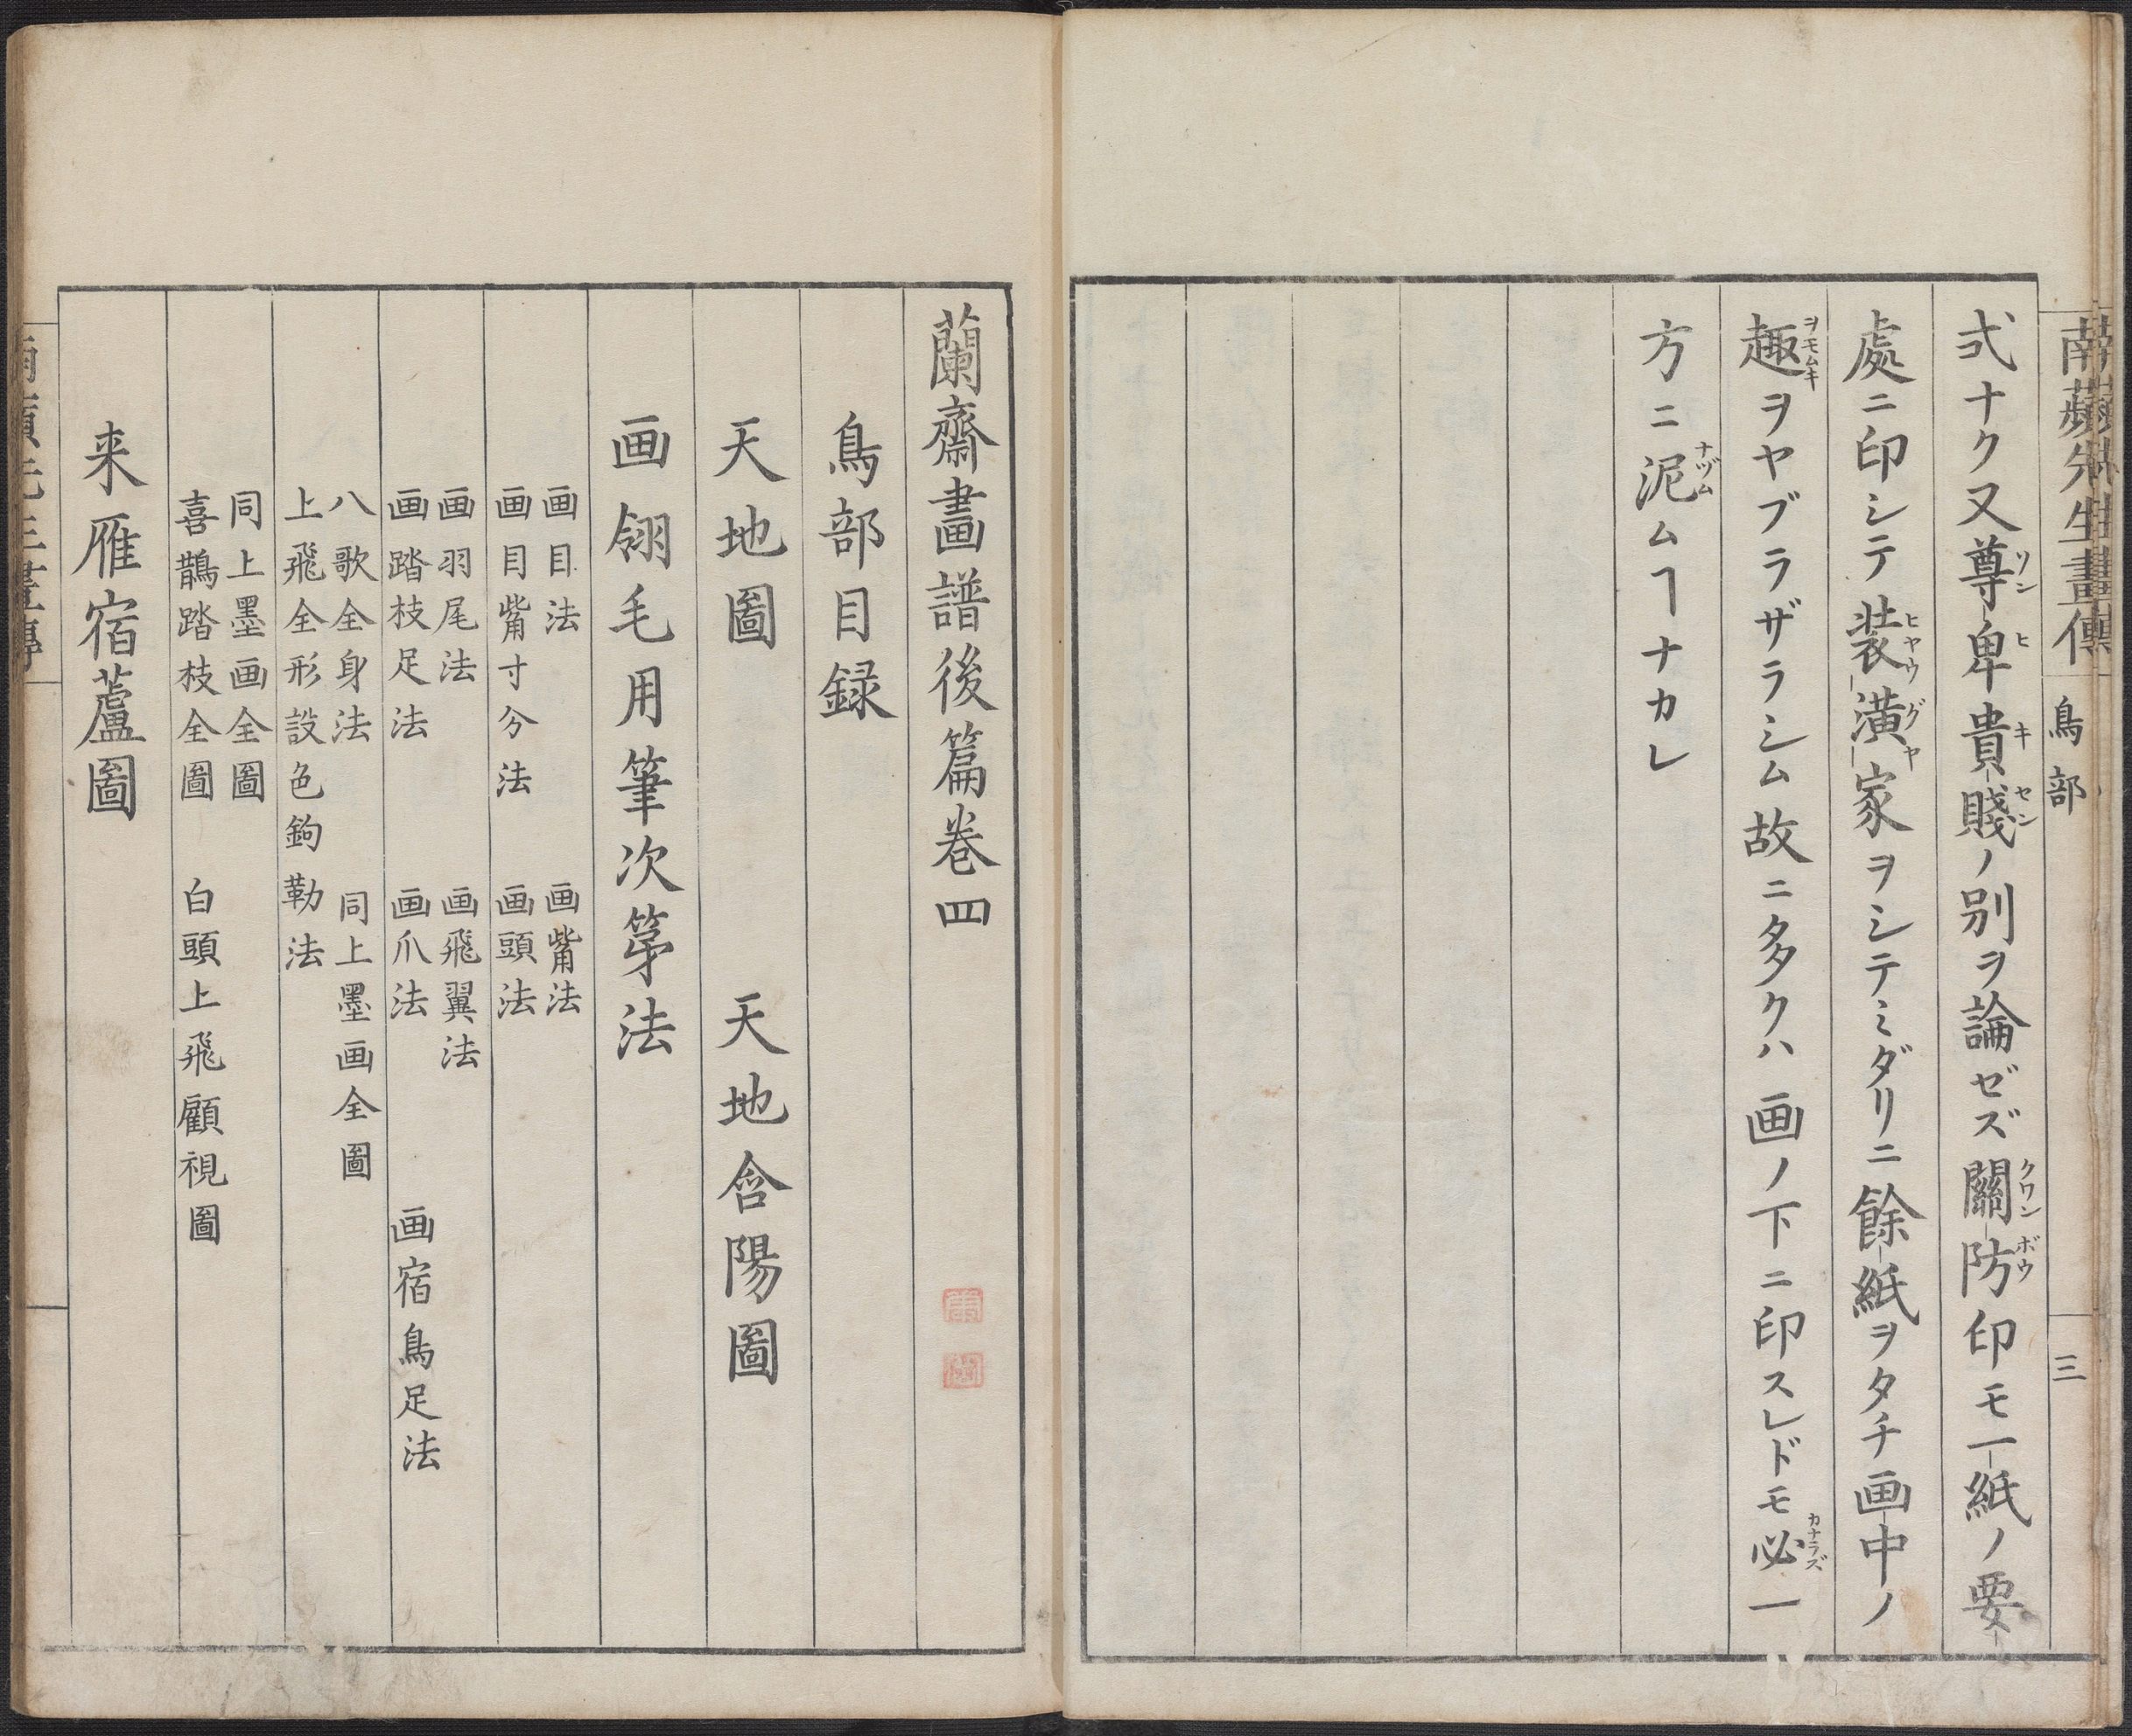 南蘋先生畫傳 鳥部 三
弍ナク又尊卑貴賤ノ別ヲ論ゼズ關防印モ一紙ノ要
ソン ヒ キ セン クワン ボウ
處ニ印シテ装潢家ヲシテミダリニ餘紙ヲタチ画中ノ
ヒヤウ グヤ
趣ヲヤブラザラシム故ニ多クハ画ノ下ニ印スレドモ必一
ヲモムキ カナラズ
方ニ泥ムヿナカレ
ナヅム
蘭齋畫譜後篇巻四
鳥部目録
天地圖 天地含陽圖
画翎毛用筆次第法
画目法 画嘴法
画目嘴寸分法 画頭法
画羽尾法 画飛翼法
画踏枝足法 画爪法 画宿鳥足法
八歌全身法 同上墨画全圖
上飛全形設色鉤勒法
同上墨画全圖
喜鵲踏枝全圖 白頭上飛顧視圖
来雁宿蘆圖